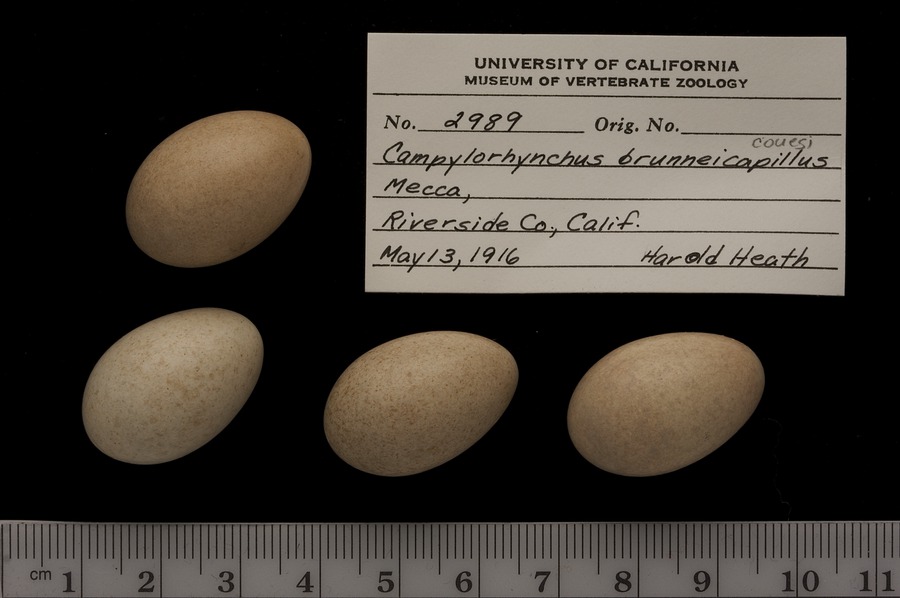 UNIVERSITY OF CALIFORNIA
MUSEUM OF VERTEBRATE ZOOLOGY
No. 2989 Orig. No.
couesi
Campylorhynchus brunneicapillus
Mecca,
Riverside Co., Calif.
May 13, 1916 Harold Heath
cm 1 2 3 4 5 6 7 8 9 10 11